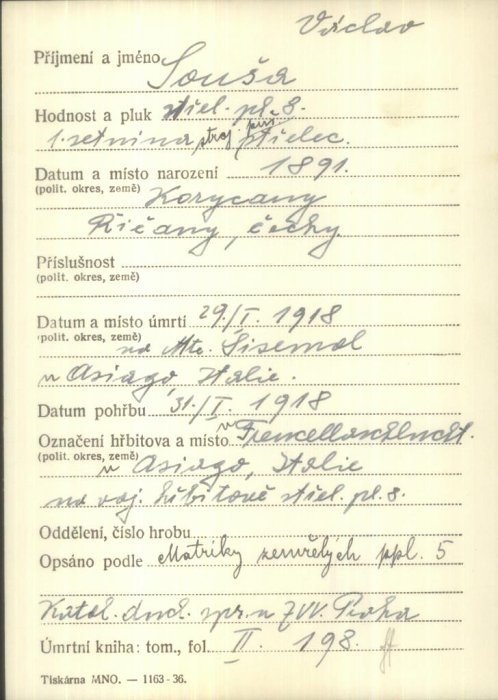 Václav
Příjmení a jméno Souša
Hodnost a pluk střel. pl. 8.
1. setnina stroj. puš. střelec.
Datum a místo narození 1891.
(polit. okres, země) Korycany
Říčany, Čechy
Příslušnost
(polit. okres, země)
Datum a místo úmrtí 29./I. 1918
(polit. okres, země) na Mte. Sisemol
u Asiago, Italie.
Datum pohřbu 31./I. 1918
Označení hřbitova a místo v Frenzellaschlucht.
(polit. okres, země) u Asiago, Italie
na voj. hřbitově střel. pl. 8.
Oddělení, číslo hrobu
Opsáno podle Matriky zemřelých ppl. 5
Katol. duch. spr. u ZVV. Praha
Úmrtní kniha: tom., fol. II. 198.
Tiskárna MNO. — 1163-36.